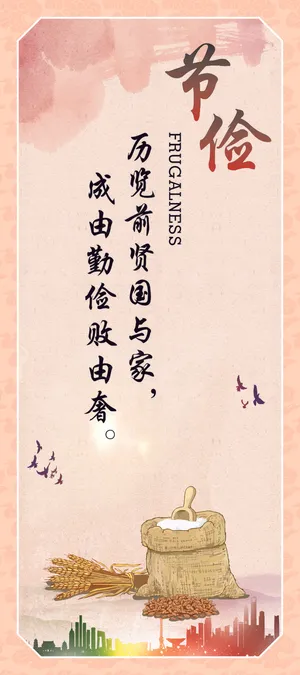 节俭
FRUGALNESS
历览前贤国与家，
成由勤俭败由奢。